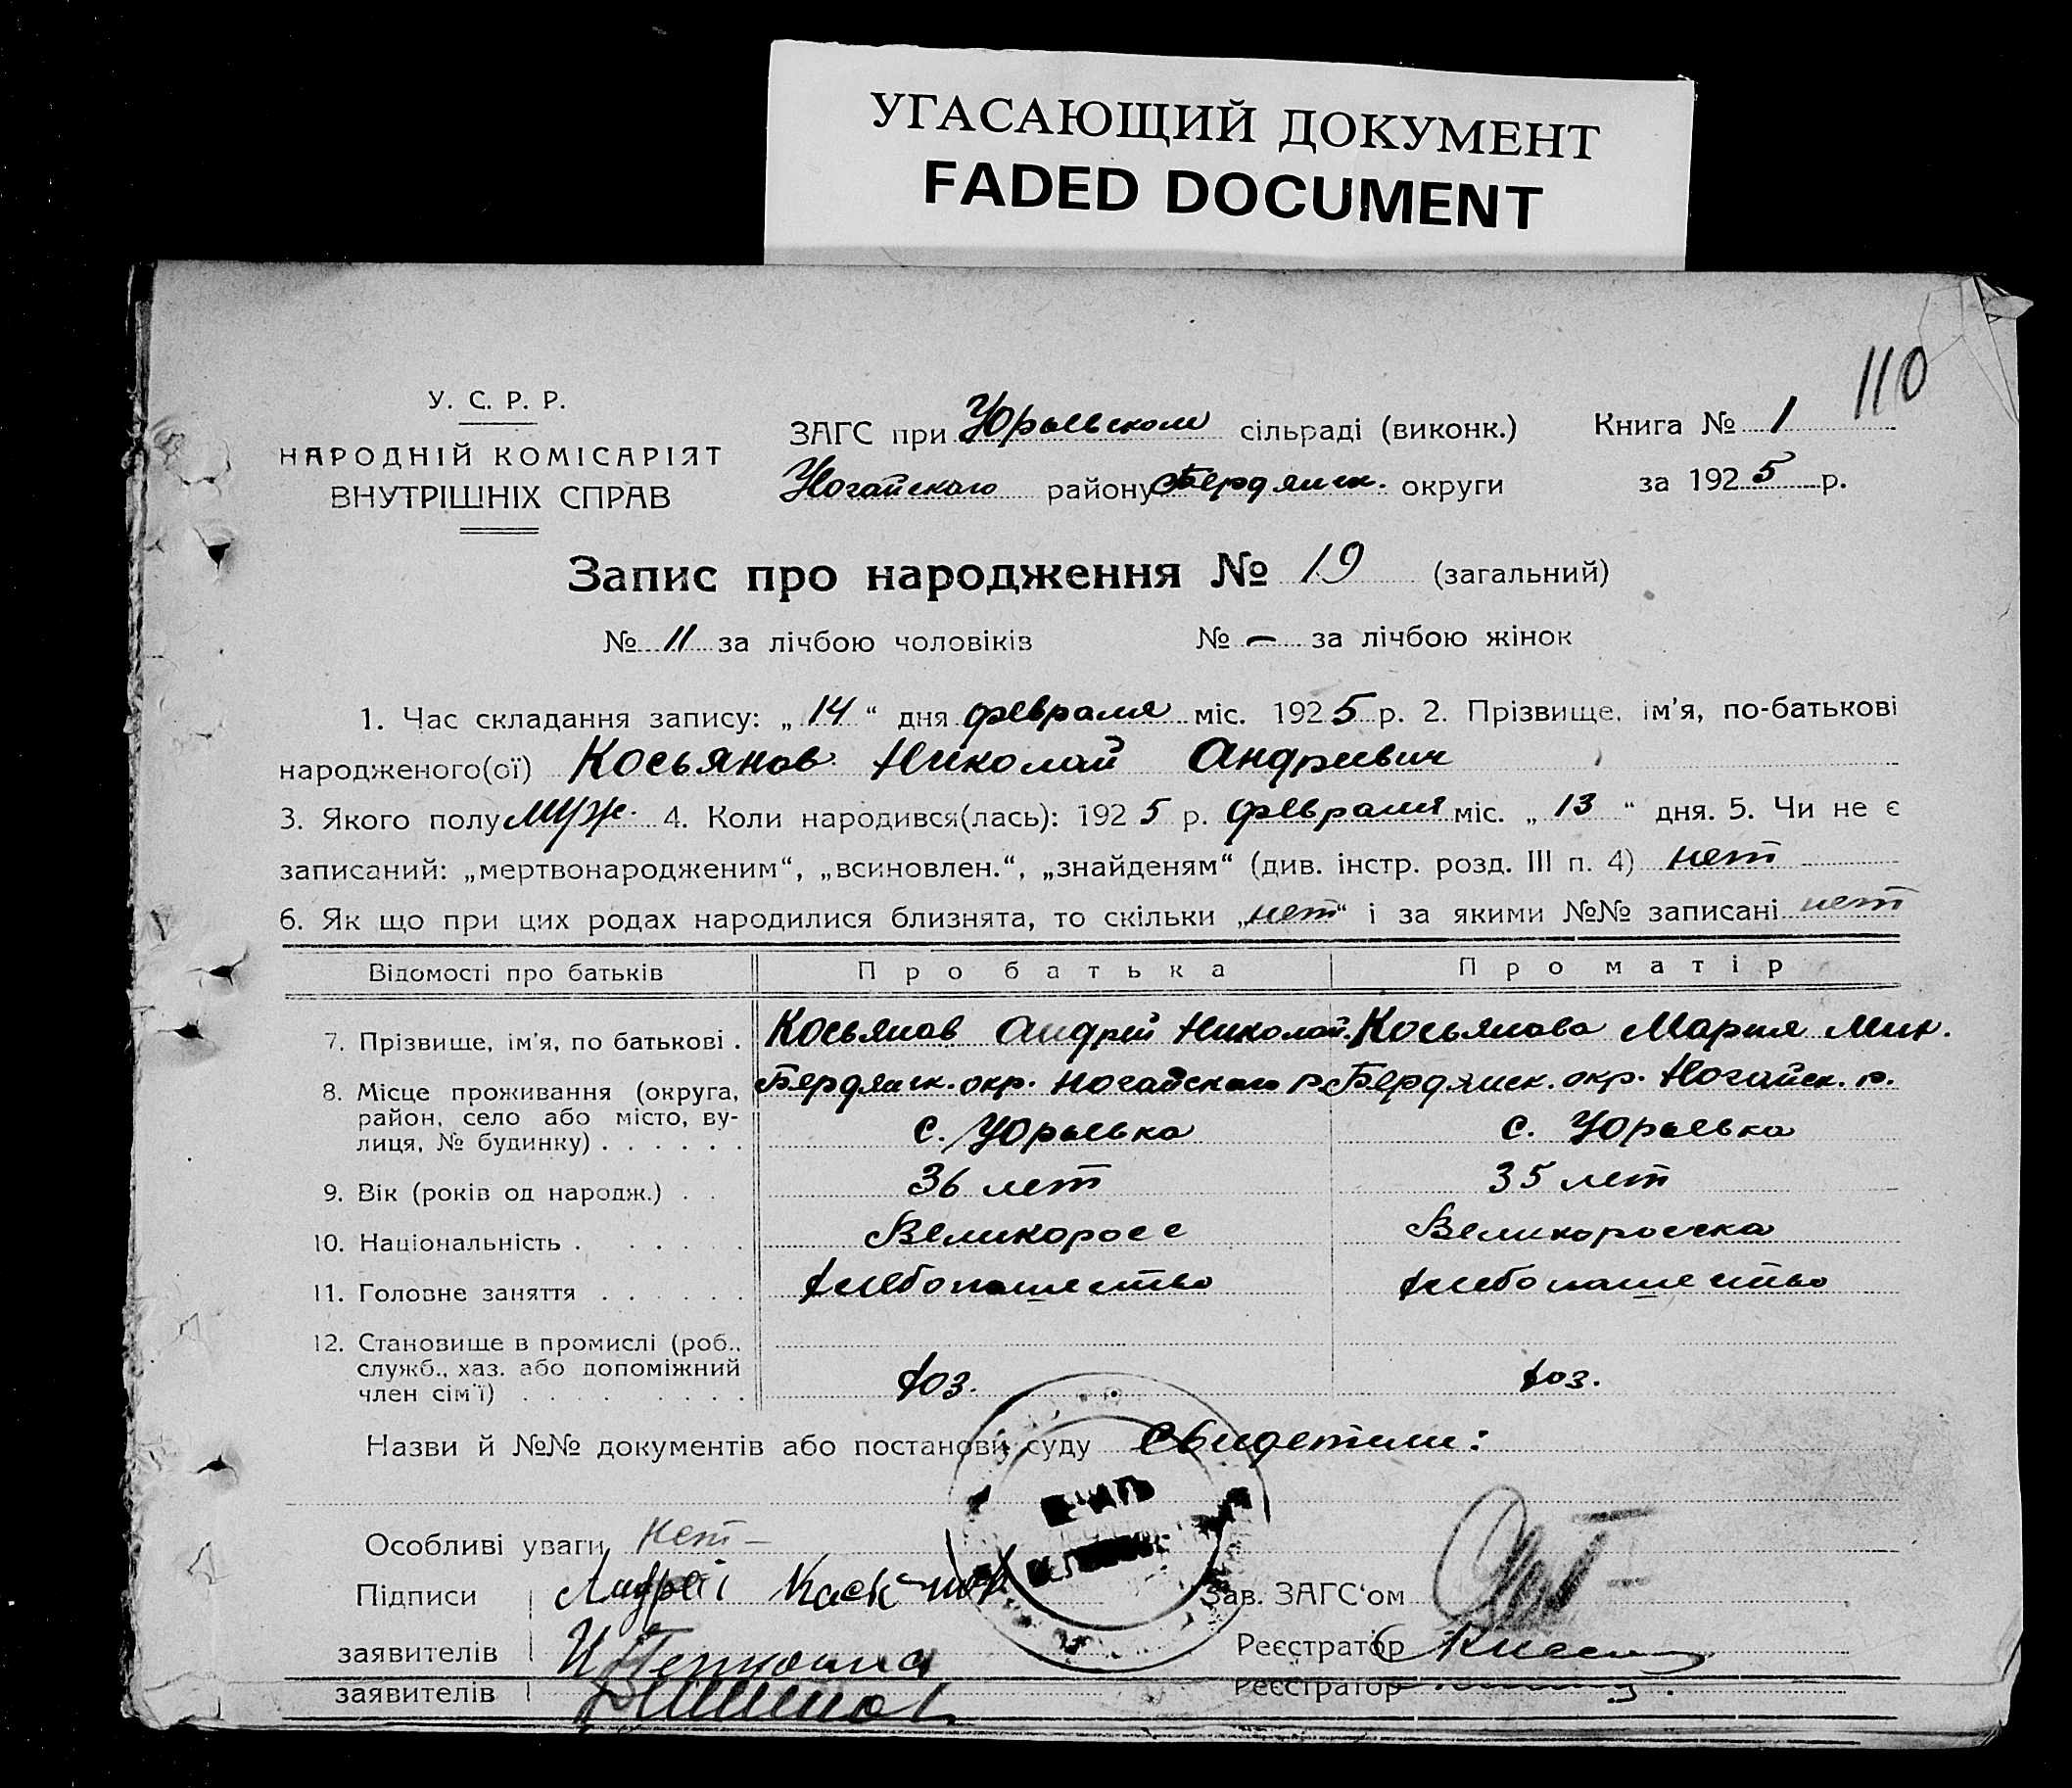 УГАСАЮЩИЙ ДОКУМЕНТ
FADED DOCUMENT
110
У. С. Р. Р.
НАРОДНІЙ КОМІСАРІЯТ
ВНУТРІШНІХ СПРАВ
ЗАГС при Юрьевском сільраді (виконк.) Книга № 1
Ногайского району Бердянск. округи за 1925 р.
Запис про народження № 19 (загальний)
№ 11 за лічбою чоловіків № — за лічбою жінок
1. Час складання запису: „ 14 “ дня февраля міс. 1925 р. 2. Прізвище, ім'я, по-батькові
народженого(ої) Косьянов Николай Андреевич
3. Якого полу муж. 4. Коли народився(лась): 1925 р. февраля міс. „ 13 “ дня. 5. Чи не є
записаний: „мертвонародженим“, „всиновлен.“, „знайденям“ (див. інстр. розд. III п. 4) нет
6. Як що при цих родах народилися близнята, то скільки „нет“ і за якими №№ записані нет
Відомості про батьків Про батька Про матір
7. Прізвище, ім'я, по батькові . Косьянов Андрей Николай. Косьянова Мария Мик.
8. Місце проживання (округа, Бердянск. окр. Ногайского р. Бердянск. окр. Ногайск. р.
район, село або місто, ву-
лиця, № будинку) . . . . . . с. Юрьевка с. Юрьевка
9. Вік (років од народж.) . . 36 лет 35 лет
10. Національність . . . . . . Великоросс Великоросска
11. Головне заняття . . . . . . хлебопашество хлебопашество
12. Становище в промислі (роб.,
служб., хаз. або допоміжний
член сім'ї) . . . . . . . . хоз. хоз.
Назви й №№ документів або постанови суду Свидетели:
Особливі уваги нет —
Підписи Андрей Зав. ЗАГС'ом
заявителів Реєстратор
заявителів Реєстратор
ПЕЧАТЬ